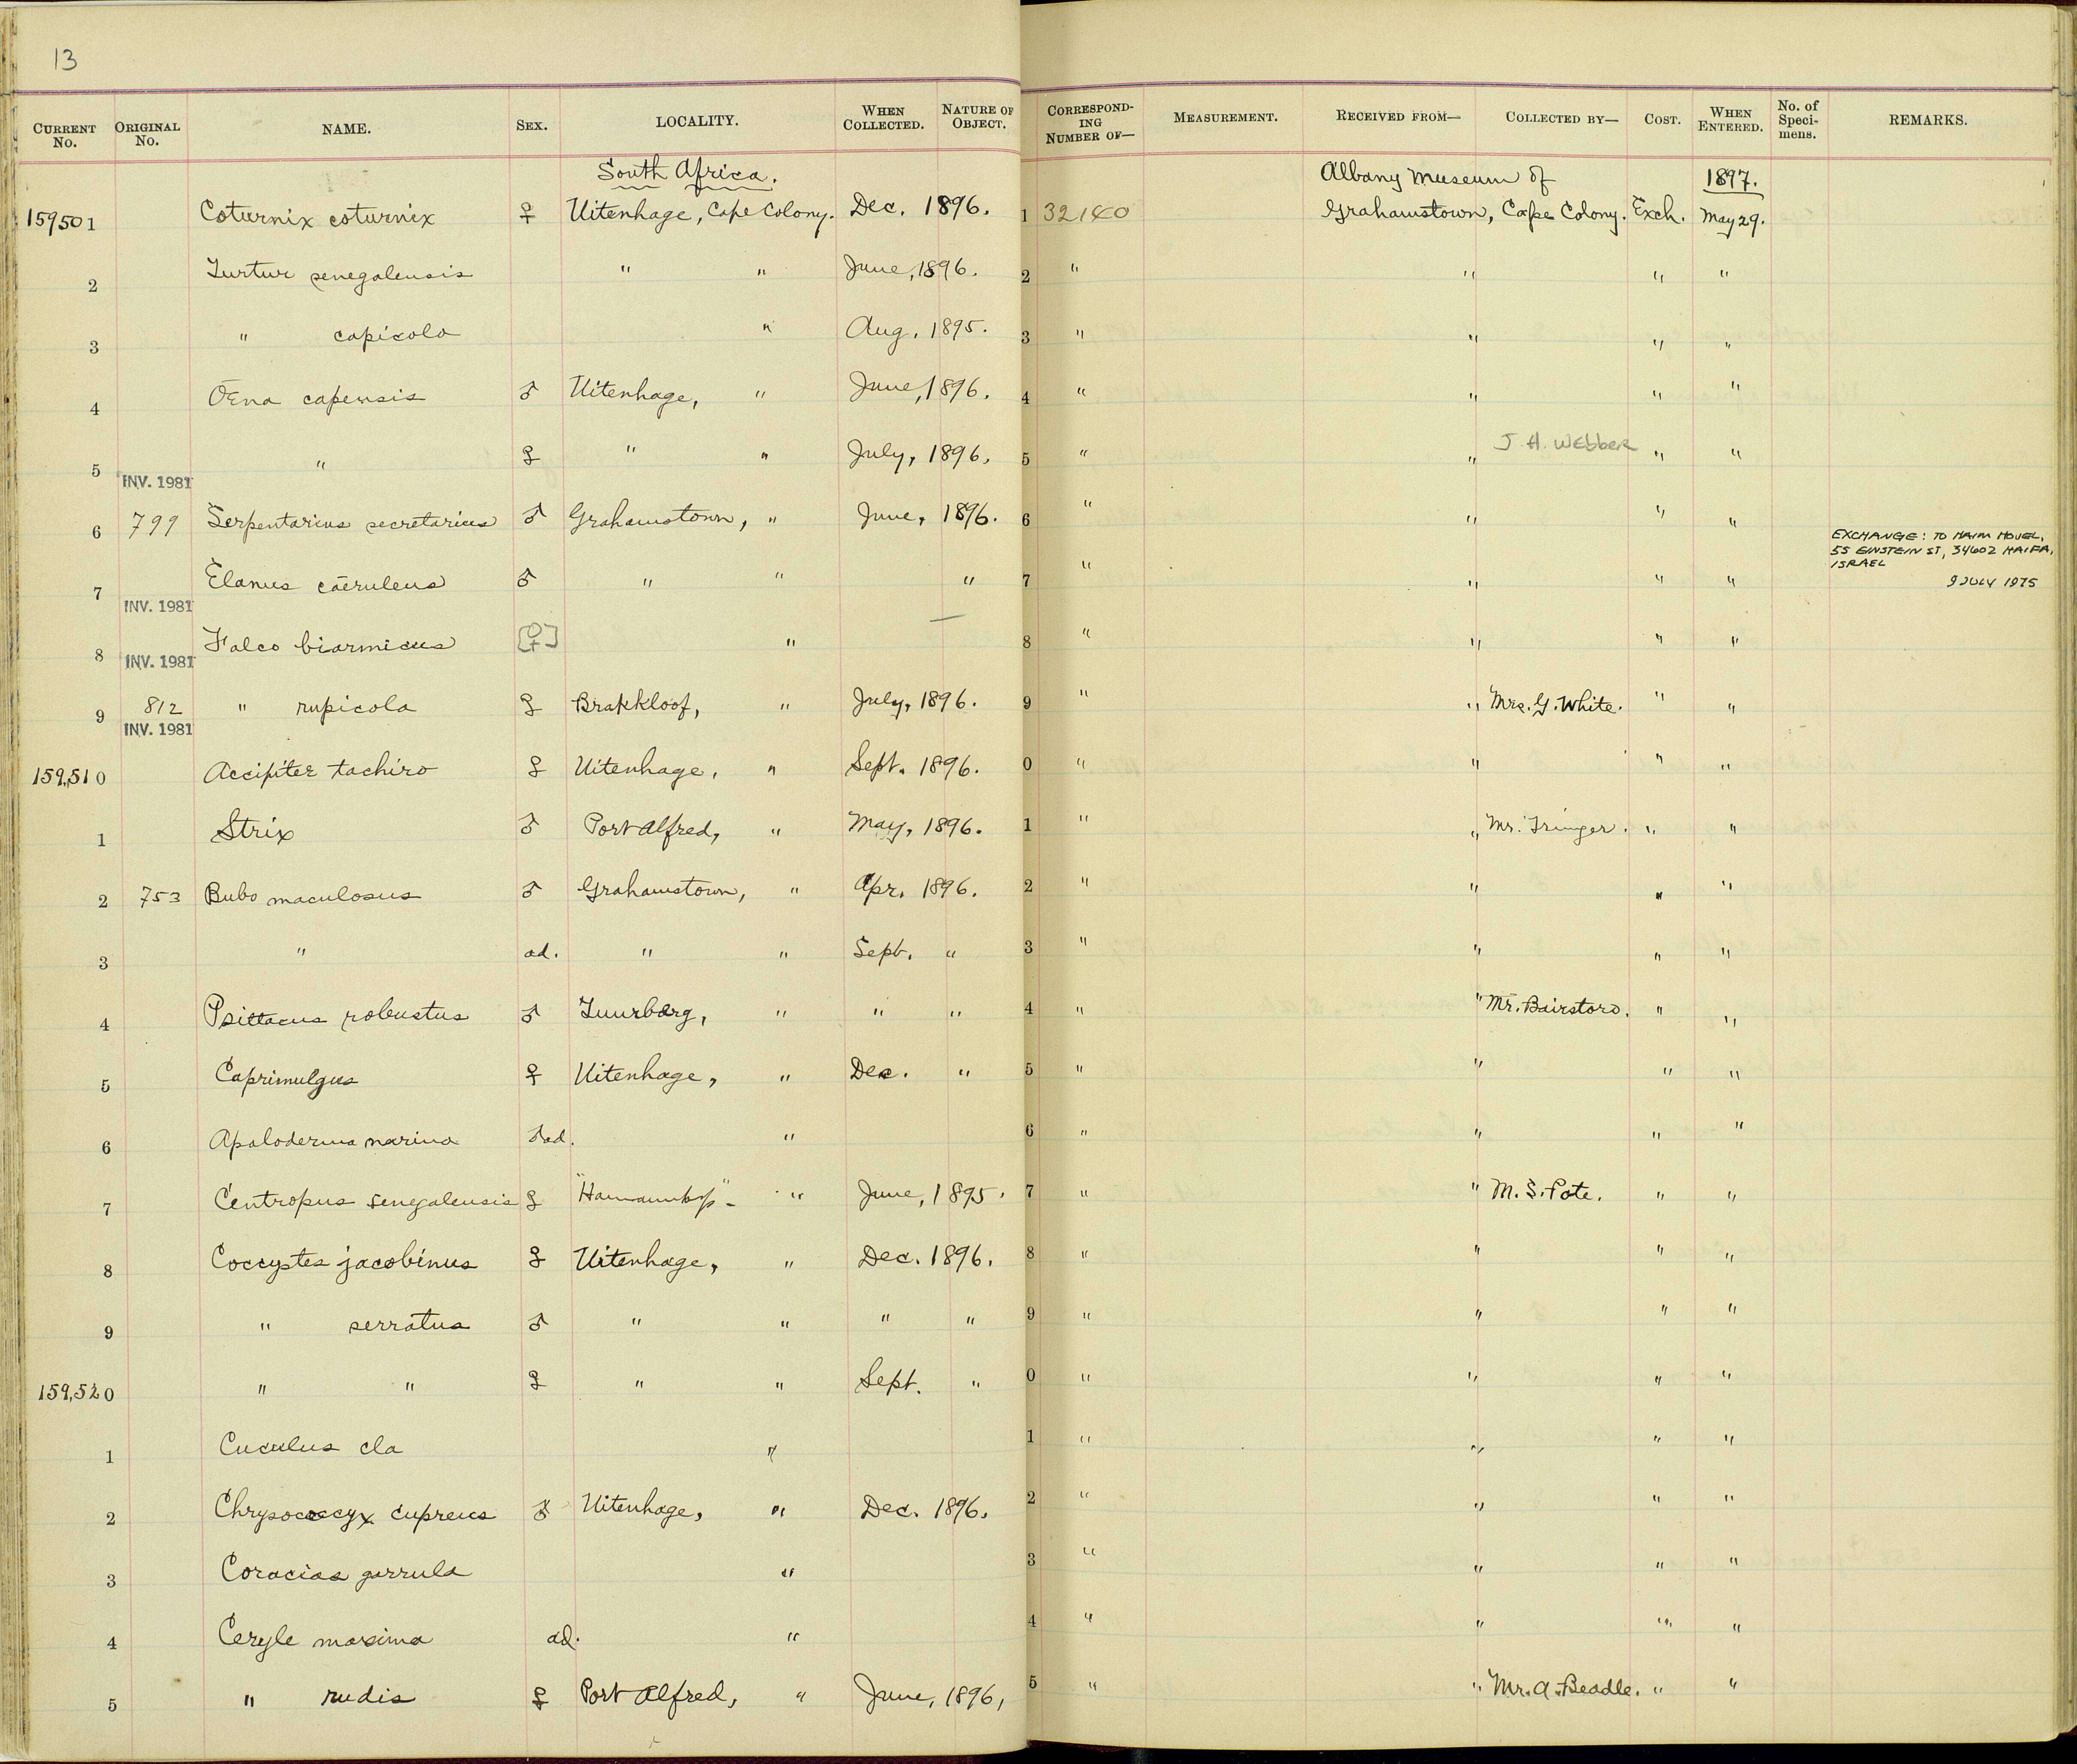 13
CURRENT No. ORIGINAL No. NAME. SEX. LOCALITY. WHEN COLLECTED. NATURE OF OBJECT. CORRESPONDING NUMBER OF— MEASUREMENT. RECEIVED FROM— COLLECTED BY— COST. WHEN ENTERED. No. of Specimens. REMARKS.
South Africa. Albany Museum of 1897.
159501 Coturnix coturnix ♀ Uitenhage, Cape Colony. Dec. 1896. 1 32140 Grahamstown, Cape Colony. Exch. May 29.
2 Turtur senegalensis " " June, 1896. 2 " " " "
3 " capicola " Aug. 1895. 3 " " " "
4 Œna capensis ♂ Uitenhage, " June, 1896. 4 " " " "
5 " ♀ " " July, 1896. 5 " " J. H. Webber " "
INV. 1981
6 799 Serpentarius secretarius ♂ Grahamstown, " June, 1896. 6 " " " "
EXCHANGE: TO HAIM HOVEL, 55 EINSTEIN ST, 34602 HAIFA, ISRAEL
7 Elanus cæruleus ♂ " " " 7 " " " " 9 JULY 1975
INV. 1981
8 Falco biarmicus [♀] " — 8 " " " "
INV. 1981
9 812 " rupicola ♀ Brakkloof, " July, 1896. 9 " " Mrs. G. White. " "
INV. 1981
159,510 Accipiter tachiro ♀ Uitenhage, " Sept. 1896. 0 " " " "
1 Strix ♂ Port Alfred, " May, 1896. 1 " " Mr. Tringer. " "
2 753 Bubo maculosus ♂ Grahamstown, " Apr. 1896. 2 " " " "
3 " ad. " " Sept. " 3 " " " "
4 Psittacus robustus ♂ Zuurberg, " " " 4 " " Mr. Bairstow. " "
5 Caprimulgus ♀ Uitenhage, " Dec. " 5 " " " "
6 Apaloderma narina ♂ad. " 6 " " " "
7 Centropus senegalensis ♀ " June, 1895. 7 " " M. S. Pote. " "
8 Coccystes jacobinus ♀ Uitenhage, " Dec. 1896. 8 " " " "
9 " serratus ♂ " " " " 9 " " " "
159,520 " " ♀ " " Sept. " 0 " " " "
1 Cuculus cla " 1 " " " "
2 Chrysococcyx cupreus ♂ Uitenhage, " Dec. 1896. 2 " " " "
3 Coracias garrula " 3 " " " "
4 Ceryle maxima ad. " 4 " " " "
5 " rudis ♀ Port Alfred, " June, 1896, 5 " " Mr. A. Beadle. " "